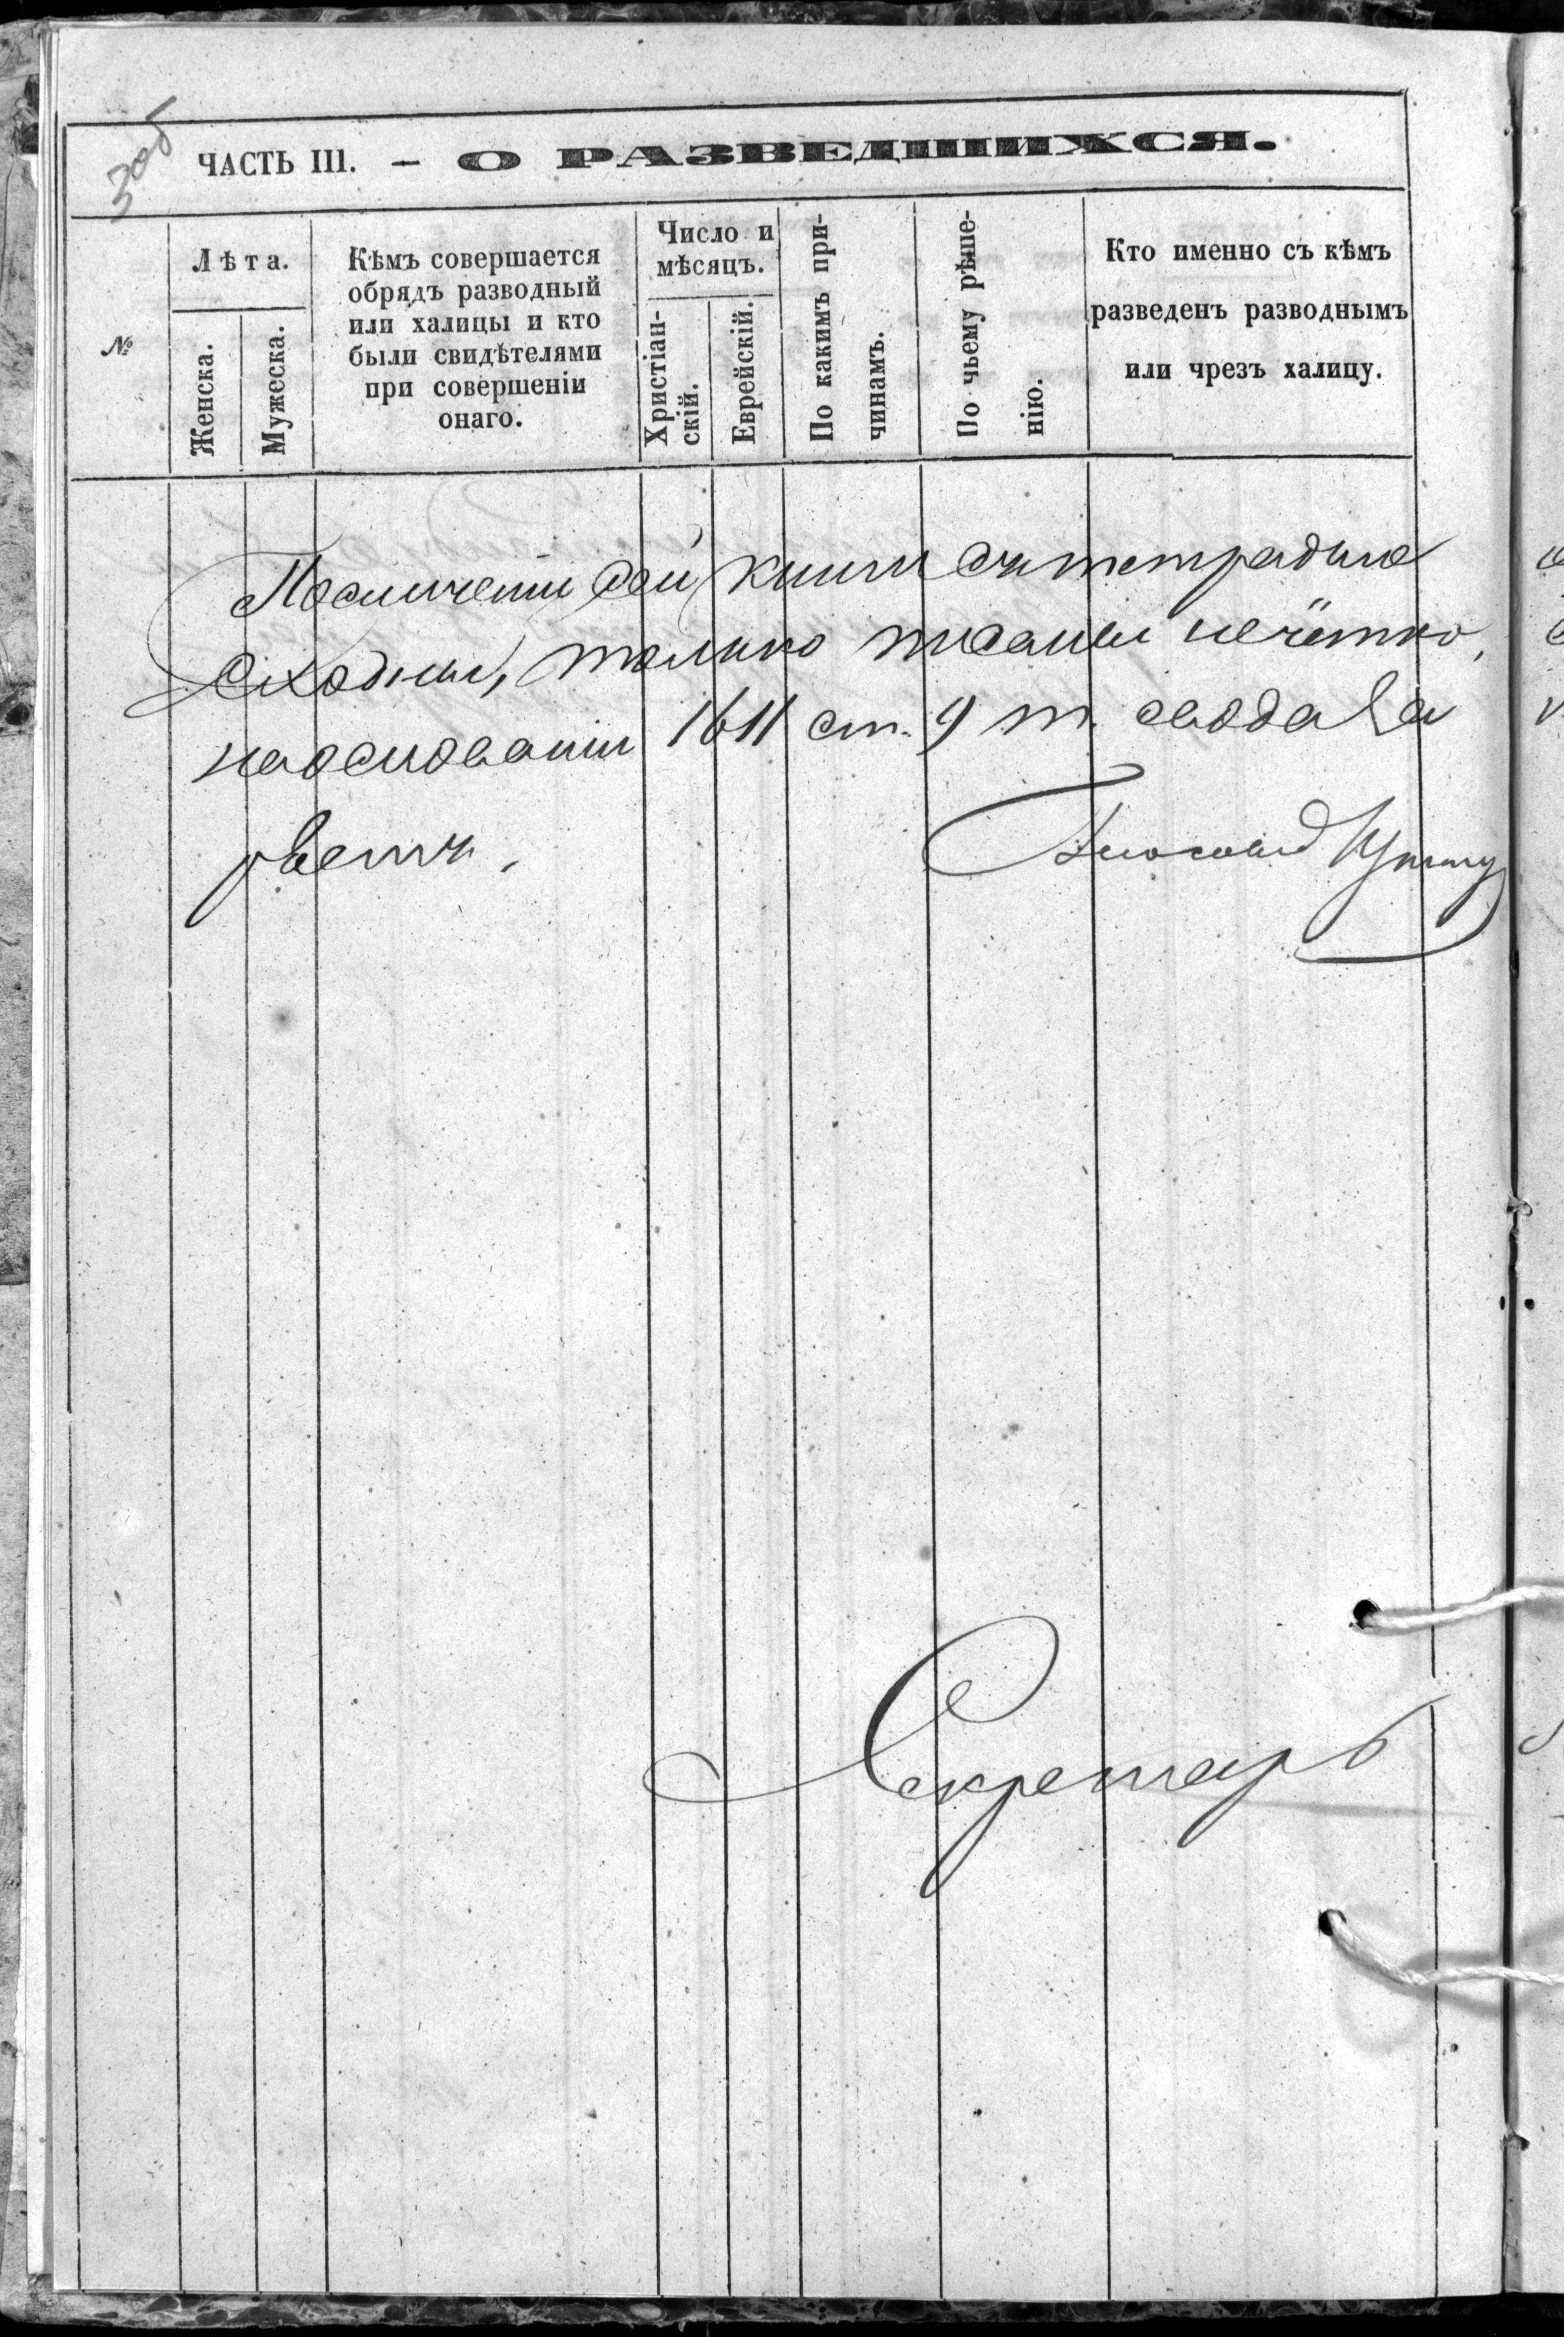 3об
ЧАСТЬ III. – О РАЗВЕДШИХСЯ.
№
Лѣта.
Женска.
Мужеска.
Кѣмъ совершается
обрядъ разводный
или халицы и кто
были свидѣтелями
при совершеніи
онаго.
Число и
мѣсяцъ.
Христіан-
скій.
Еврейскій.
По какимъ при-
чинамъ.
По чьему рѣше-
нію.
Кто именно съ кѣмъ
разведенъ разводнымъ
или чрезъ халицу.
По сличеніи сей книги съ тетрадью
сходны, только писаны нечётко,
на основаніи 1611 ст. 9 т. свода За
Секретарь